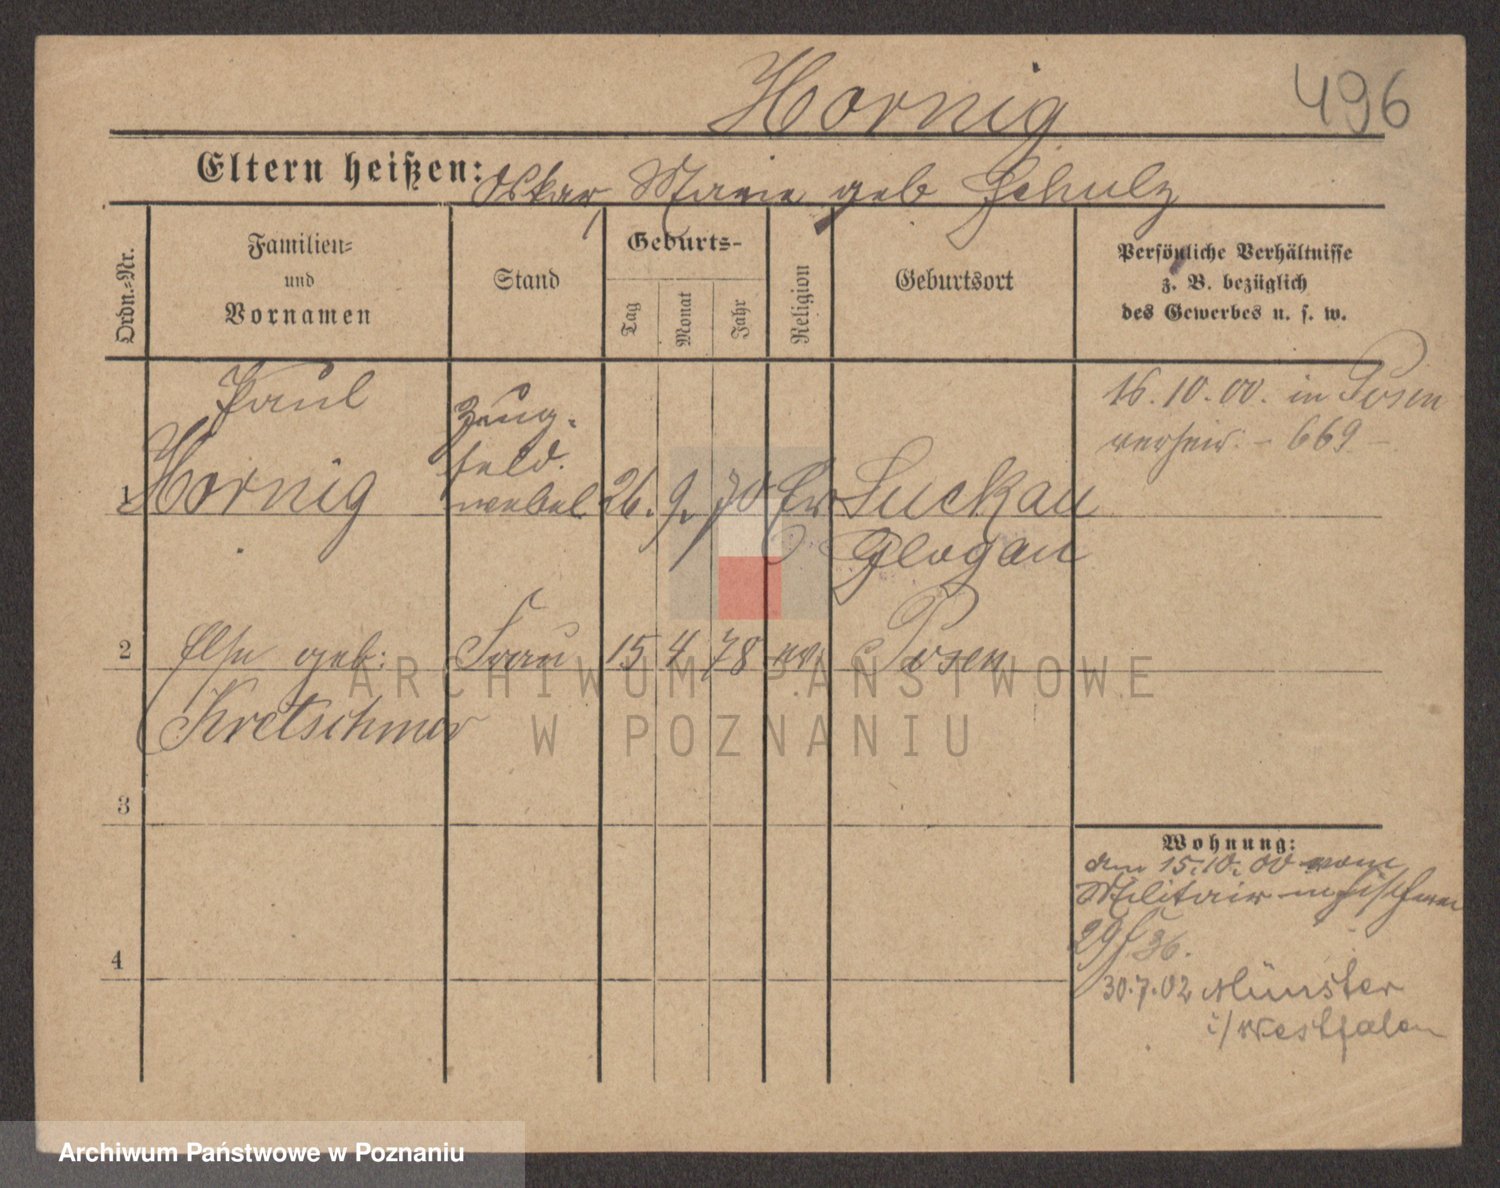 Hornig 496
Eltern heißen: Oskar, Marie geb Schulz
Ordn.=Nr.
Familien=
und
Vornamen
Stand
Geburts-
Tag
Monat
Jahr
Religion
Geburtsort
Persönliche Verhältnisse
z. B. bezüglich
des Gewerbes u. s. w.
Paul
1 Hornig
Zeug-
feld.
webel
26. 9. 70 Ev Luckau
Glogau
16. 10. 00. in Posen
verheir. - 669 -
2 Else geb: Frau 15 4 78 ev. Posen
Kretschmer
3
4
Wohnung:
am 15.10.00 vom
Militair
30.7.02 Münster
i/Westfalen
ARCHIWUM PAŃSTWOWE
W POZNANIU
Archiwum Państwowe w Poznaniu